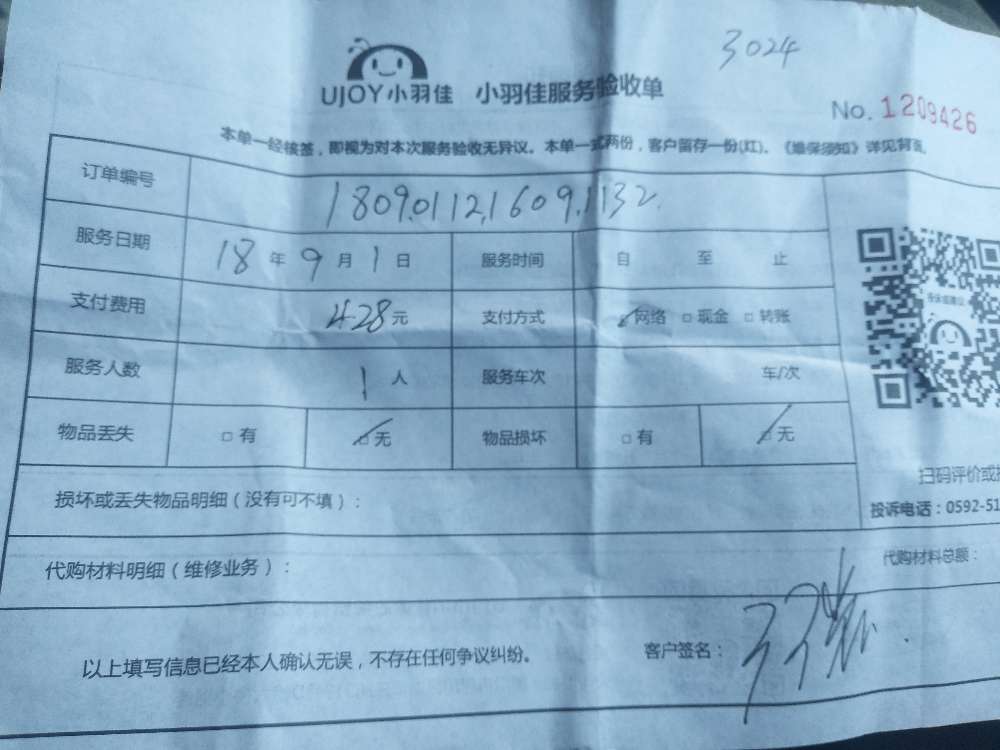 3024
UJOY小羽佳 小羽佳服务验收单
No. 1209426
本单一经核签，即视为对本次服务验收无异议。本单一式两份，客户留存一份(红)。《维保须知》详见背面
订单编号 1809011216091132
服务日期 18年9月1日 服务时间 自 至 止
支付费用 428元 支付方式 网络 □现金 □转账
服务人数 1人 服务车次 车/次
物品丢失 □有 □无 物品损坏 □有 □无
扫码评价或
损坏或丢失物品明细（没有可不填）：
投诉电话：0592-51
代购材料明细（维修业务）： 代购材料总额：
以上填写信息已经本人确认无误，不存在任何争议纠纷。 客户签名：